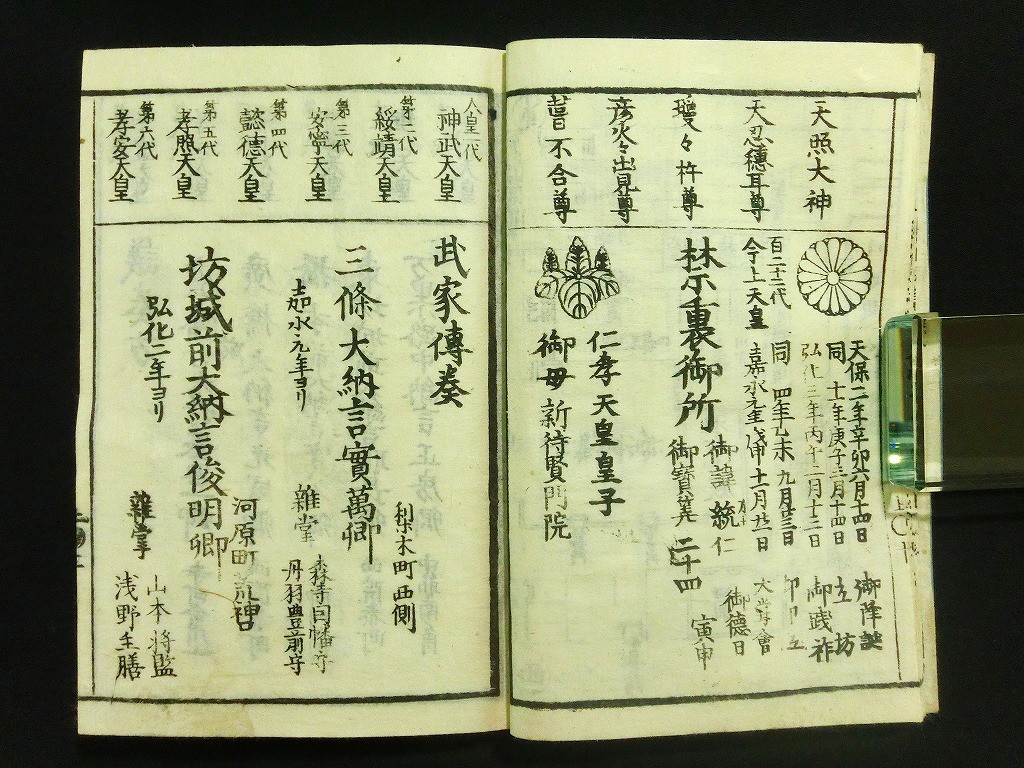 天照大神
天忍穗耳尊
瓊々杵尊
彦火々出見尊
葺不合尊
天保二年辛卯六月十四日 御降誕
同十一年庚子三月十四日 立坊
弘化三年丙午二月十三日 御践祚
同四年丁未九月廿三日 即位
嘉永元年戊申十一月廿一日 大嘗會
百二十二代
今上天皇
禁裏御所
御諱統仁
御德日
御寳筭二十四
寅申
仁孝天皇皇子
御母新待賢門院
人皇一代
神武天皇
第二代
綏靖天皇
第三代
安寧天皇
第四代
懿德天皇
第五代
孝照天皇
第六代
孝安天皇
武家傳奏
梨木町西側
三條大納言實萬卿
嘉永元年ヨリ
雜掌
森寺因幡守
丹羽豊前守
河原町荒神口
坊城前大納言俊明卿
弘化二年ヨリ
雜掌
山本将監
浅野主膳